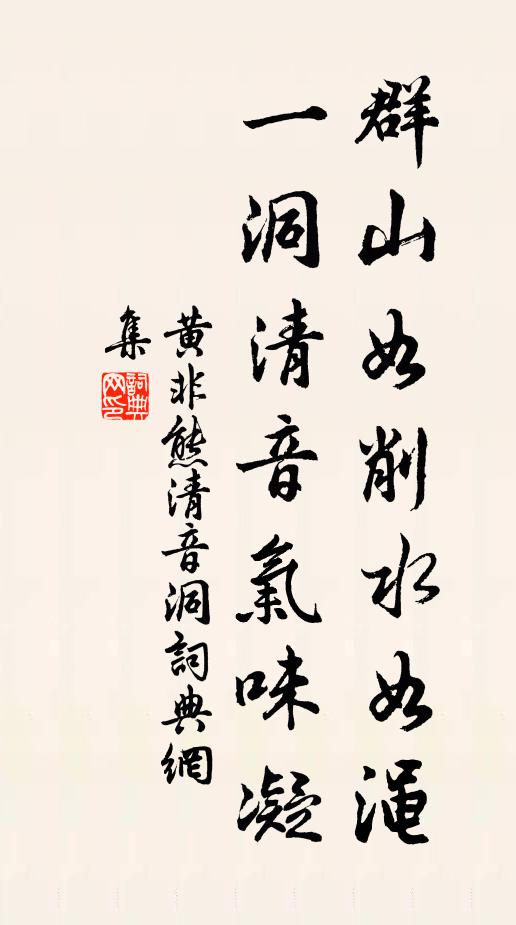 群山如削水如渑
一洞清音氣味凝
黄非熊清音洞詞典網
集
詞典
网印